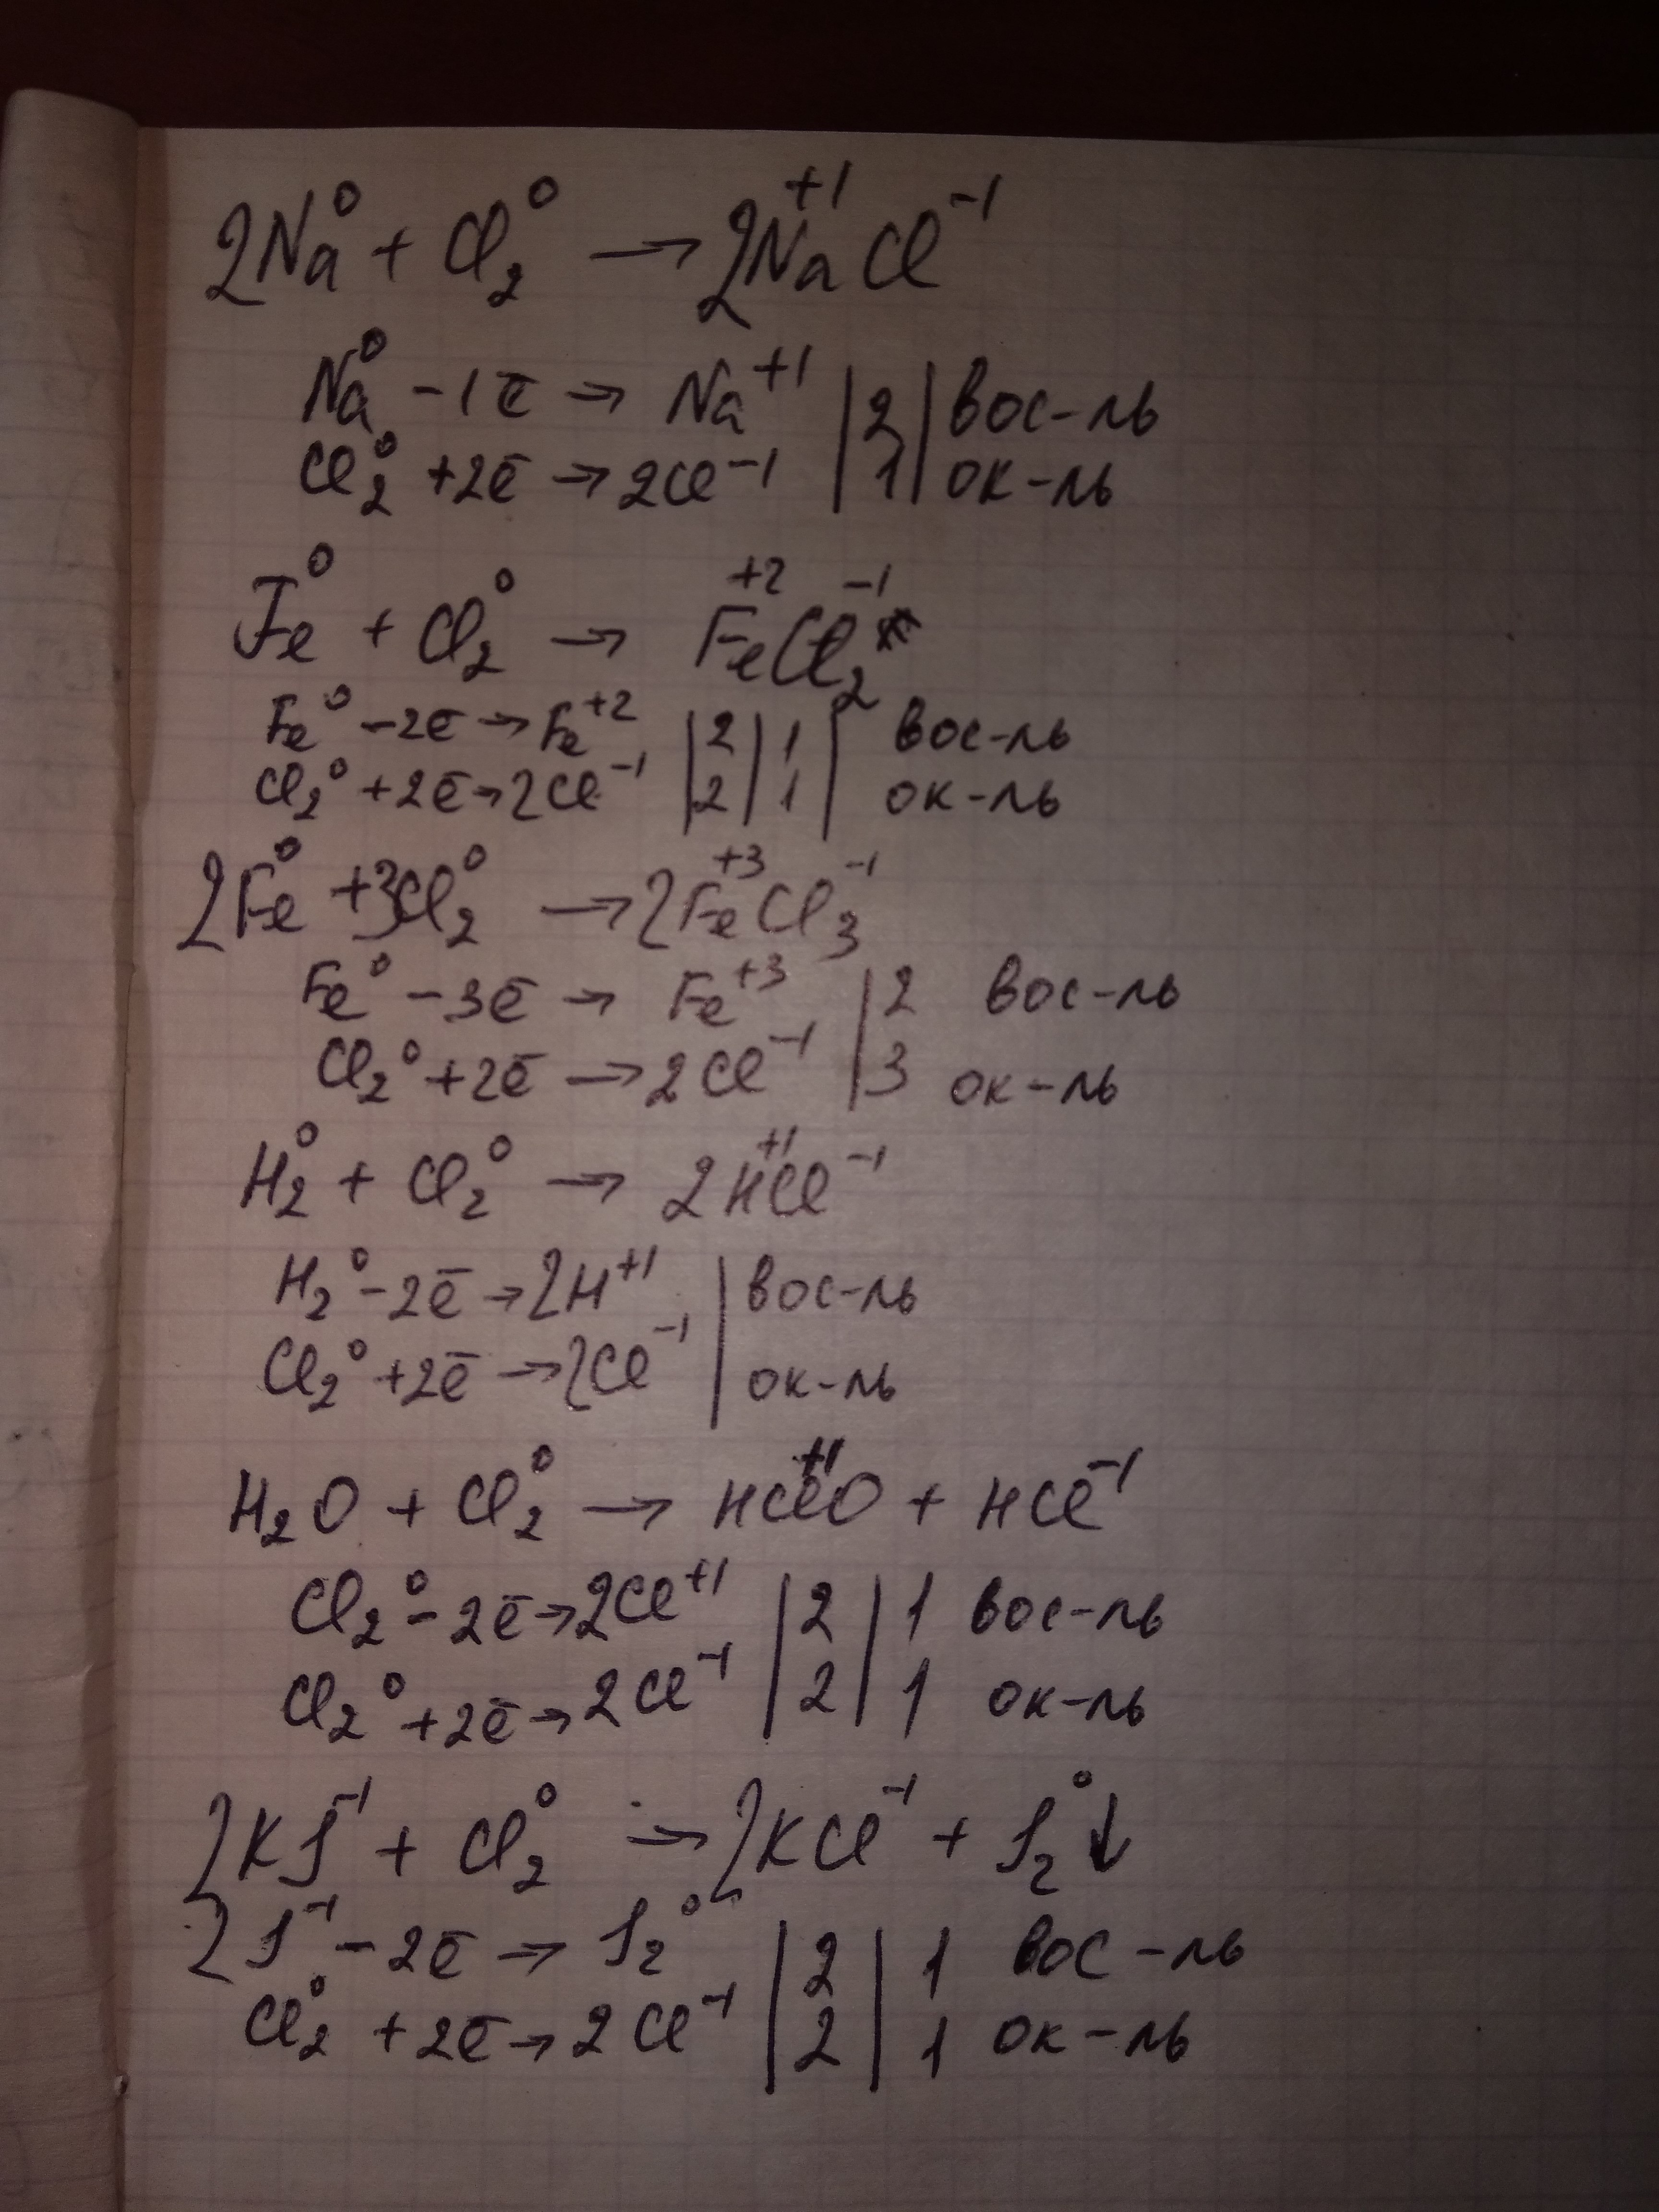 2Na⁰ + Cl₂⁰ → 2Na⁺¹Cl⁻¹
Na⁰ -1ē → Na⁺¹ |2| вос-ль
Cl₂⁰ +2ē → 2Cl⁻¹ |1| ок-ль
Fe⁰ + Cl₂⁰ → Fe⁺²Cl₂⁻¹
Fe⁰ -2ē → Fe⁺² |2|1| вос-ль
Cl₂⁰ +2ē → 2Cl⁻¹ |2|1| ок-ль
2Fe⁰ +3Cl₂⁰ → 2Fe⁺³Cl₃⁻¹
Fe⁰ -3ē → Fe⁺³ |2 вос-ль
Cl₂⁰ +2ē → 2Cl⁻¹ |3 ок-ль
H₂⁰ + Cl₂⁰ → 2H⁺¹Cl⁻¹
H₂⁰ -2ē → 2H⁺¹ | вос-ль
Cl₂⁰ +2ē → 2Cl⁻¹ | ок-ль
H₂O + Cl₂⁰ → HCl⁺¹O + HCl⁻¹
Cl₂⁰ -2ē → 2Cl⁺¹ |2|1 вос-ль
Cl₂⁰ +2ē → 2Cl⁻¹ |2|1 ок-ль
2KJ⁻¹ + Cl₂⁰ → 2KCl⁻¹ + J₂⁰↓
2J⁻¹ -2ē → J₂⁰ |2|1 вос-ль
Cl₂⁰ +2ē → 2Cl⁻¹ |2|1 ок-ль